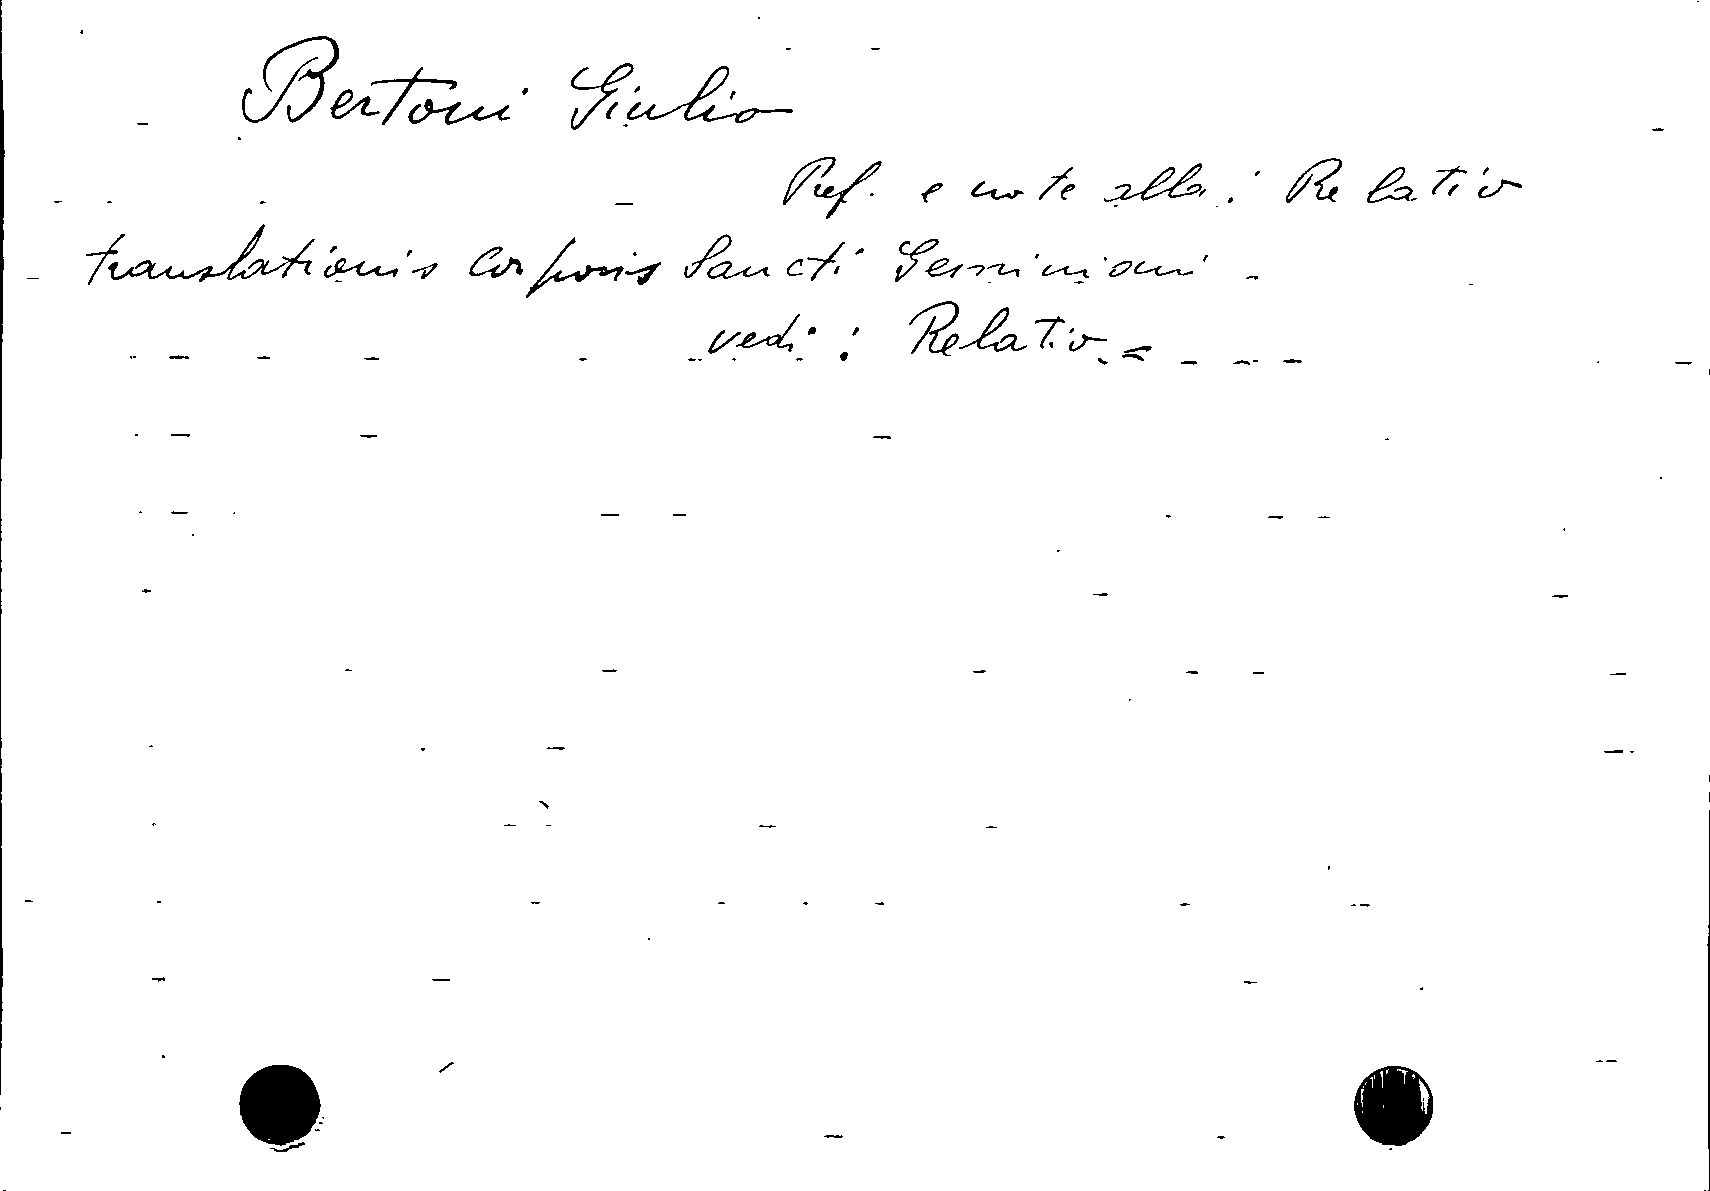 Bertoni Giulio
Pref. e note alla: Relatio
translationis corporis Sancti Geminiani -
vedi: Relatio =